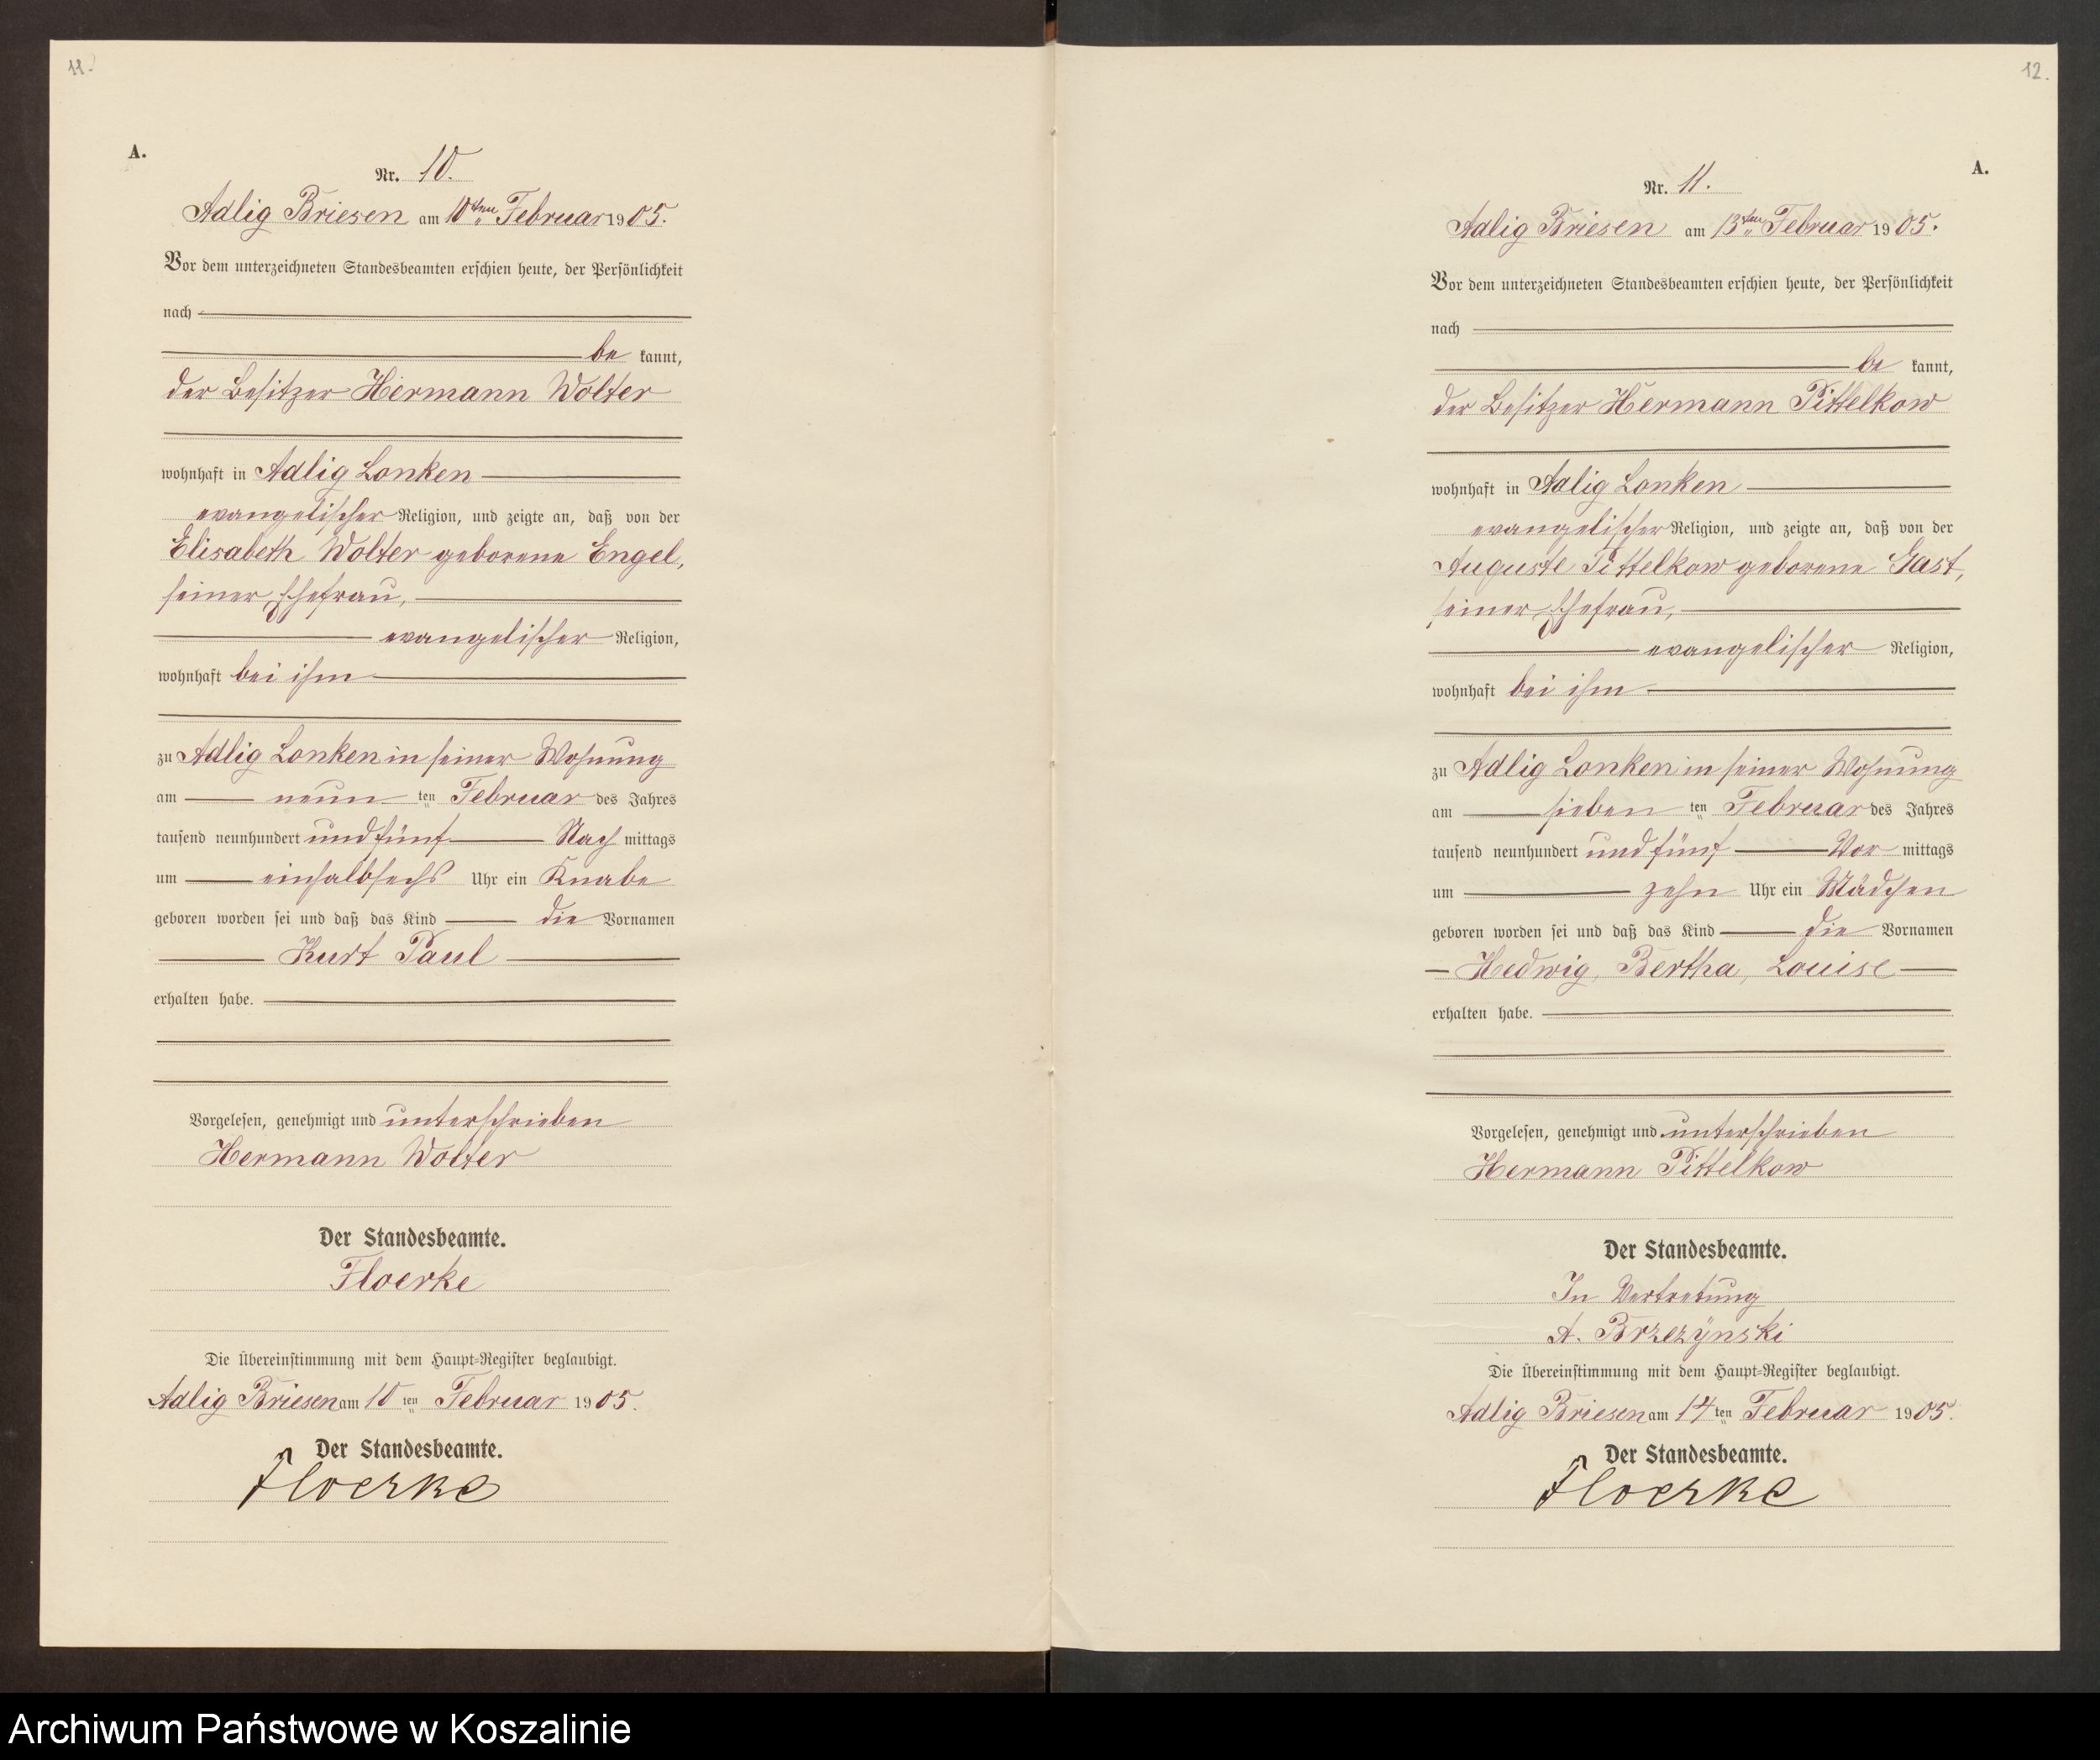 11.
A.
Nr. 10.
Adlig Briesen am 10ten Februar 1905.
Vor dem unterzeichneten Standesbeamten erschien heute, der Persönlichkeit
nach
be kannt,
der Besitzer Hermann Wolter
wohnhaft in Adlig Lonken
evangelischer Religion, und zeigte an, daß von der
Elisabeth Wolter geborene Engel,
seiner Ehefrau,
evangelischer Religion,
wohnhaft bei ihm
zu Adlig Lonken in seiner Wohnung
am neun ten Februar des Jahres
tausend neunhundert und fünf Nach mittags
um einhalbsechs Uhr ein Knabe
geboren worden sei und daß das Kind die Vornamen
Kurt Paul
erhalten habe.
Vorgelesen, genehmigt und unterschrieben
Hermann Wolter
Der Standesbeamte.
Floerke
Die Übereinstimmung mit dem Haupt-Register beglaubigt.
Adlig Briesen am 10 ten Februar 1905.
Der Standesbeamte.
Floerke
12.
A.
Nr. 11.
Adlig Briesen am 13ten Februar 1905.
Vor dem unterzeichneten Standesbeamten erschien heute, der Persönlichkeit
nach
be kannt,
der Besitzer Hermann Pittelkow
wohnhaft in Adlig Lonken
evangelischer Religion, und zeigte an, daß von der
Auguste Pittelkow geborene Gast,
seiner Ehefrau,
evangelischer Religion,
wohnhaft bei ihm
zu Adlig Lonken in seiner Wohnung
am sieben ten Februar des Jahres
tausend neunhundert und fünf Vor mittags
um zehn Uhr ein Mädchen
geboren worden sei und daß das Kind die Vornamen
Hedwig, Bertha, Louise
erhalten habe.
Vorgelesen, genehmigt und unterschrieben
Hermann Pittelkow
Der Standesbeamte.
In Vertretung
A. Brzezÿnski
Die Übereinstimmung mit dem Haupt-Register beglaubigt.
Adlig Briesen am 14 ten Februar 1905.
Der Standesbeamte.
Floerke
Archiwum Państwowe w Koszalinie